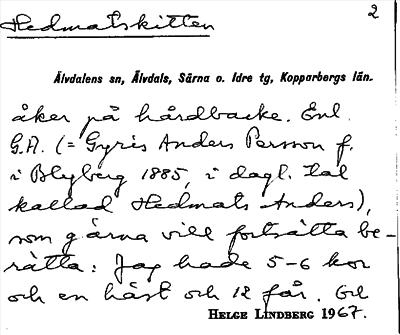 Hedmatskitten
2
Älvdalens sn, Älvdals, Särna o. Idre tg, Kopparbergs län.
åker på hårdbacke. Enl.
G.A. (= Gyris Anders Persson f.
i Blyberg 1885, i dagl. tal
kallad Hedmats Anders),
som gärna vill fortsätta be-
rätta: Jag hade 5-6 kor
och en häst och 12 får. Gd
HELGE LINDBERG 1967.